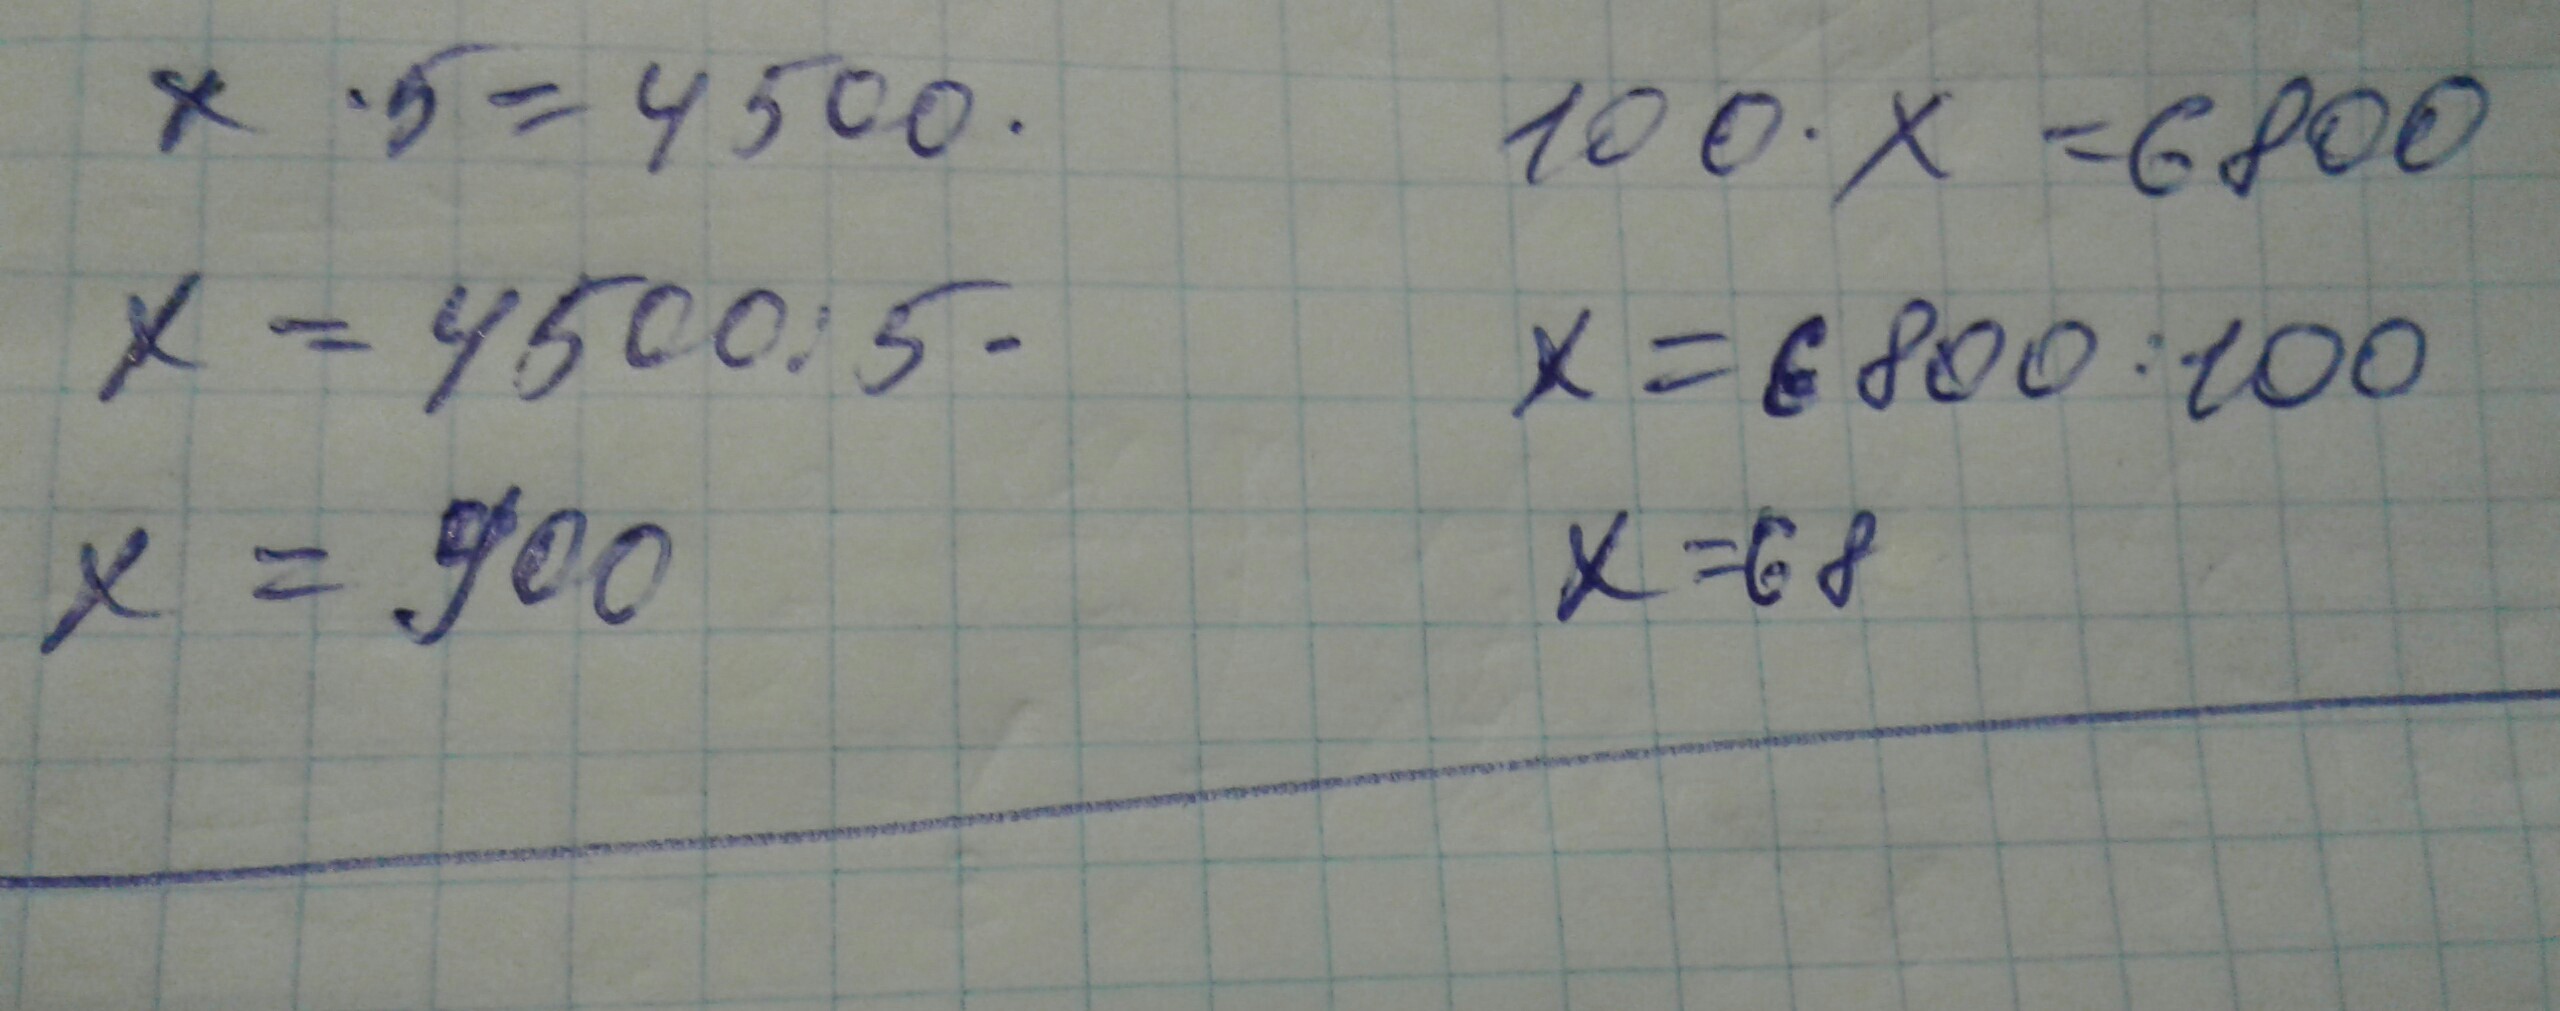 x · 5 = 4500.
x = 4500 : 5 -
x = 900
100 · x = 6800
x = 6800 : 100
x = 68